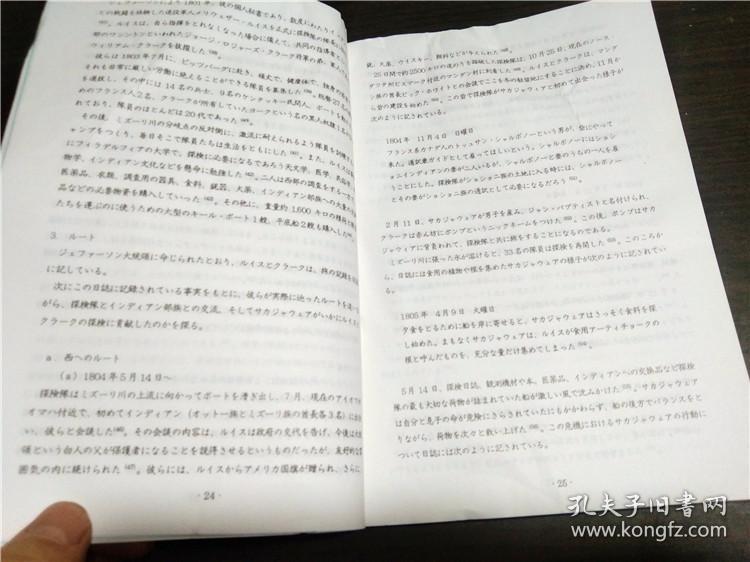 ジェファーソンにより1801年、彼の個人秘書であり、
ルイスは、自ら指揮をとれなくなった場合に備えて、共同の指導者
ウィリアム・クラークを抜擢した
彼らは1803年7月に、ピッツバーグに赴き、
それも非常に厳しい労働に絶えることができる隊員を募集した
を選抜し、その中には14名の兵士、9名のケンタッキー民間人、
めのフランス人2名、クラークが所有していたヨークという名の黒人奴隷1名
れており、隊員のほとんどは20代であった
その後、ミズーリ川の分岐点の反対側に、激流に耐えられるよう隊員を訓練す
ャンプをつくり、毎日そこで隊員たちは生活をともにした
にフィラデルフィアの大学で、探検に必要になるであろう天文学、医学、
物学、インディアン文化などを懸命に勉強した
医薬品、衣類、調査用の器具、食料、銃器、火薬、インディアン部族への
品などの必要物資を購入していった
たちを運ぶのに使うための大型のキール・ボート1艘、平底船2艘も購入した
3. ルート
ジェファーソン大統領に命じられたとおり、ルイスとクラークは、旅の記録を
に記している。
次にこの日誌に記録されている事実をもとに、彼らが実際に辿ったルートを追
がら、探検隊とインディアン部族との交流、そしてサカジャウェアがいかにルイスと
クラークの探検に貢献したのかを探る。
a. 西へのルート
(a) 1804年5月14日～
探検隊はミズーリ川の上流に向かってボートを漕ぎ出し、7月、現在のアイオワ
オマハ付近で、初めてインディアン（オットー族とミズーリ族の首長各3名）に出
い、彼らと会談した(46)。その会談の内容は、ルイスは政府の交代を告げ、今後は大
領という白人の父が保護者になることを説得させるというものだったが、友好的な
囲気の内に続けられた(47)。彼らには、ルイスからアメリカ国旗が贈られ、さらに
・24・
銃、火薬、ウイスキー、飼料などが与えられた
25日間で約2500キロの道のりを踏破した探検隊は、10月25日、現在のノース・
ダコタ州ビスマーク付近のマンダン村に到着した
ン族の首長ビック・ホワイトとの会談でここを冬の駐留地にすることに決め、11月か
ら砦の建設を始めた
次のように記されている。
1804年 11月4日 日曜日
フランス系カナダ人のトゥッサン・シャルボノーという男が、会にやって
来た。通訳兼ガイドとして雇ってほしいという。シャルボノーにはショ
ショニインディアンの妻が二人いるが、シャルボノーと妻のうちの一人を雇
うことにした。探検隊がショショニ族の土地に入る時には、シャルボノー
とその妻がショショニ族の通訳として必要になるだろう
2月11日、サカジャウェアが男子を産み、ジャン・バプティストと名付けられ、
クラークは赤ん坊にポンプというニックネームをつけた
ジャウェアに背負われて、探検隊と共に旅をすることになるのである。
ミズーリ川に張った氷が溶けると、33名の隊員は探検を再開した
ら、日誌には食用の植物や根を集めたサカジャウェアの様子が次のように記されてい
る。
1805年 4月9日 火曜日
夕食をとるために船を岸に寄せると、サカジャウェアはさっそく食料を探
し始めた。まもなくサカジャウェアは、ルイスが食用アーティチョークの
根と呼んだものを、充分な量だけ集めてしまった
5月14日、探検日誌、観測機材や本、医薬品、インディアンへの交換品など探検
隊の最も大切な荷物が詰まれていた船が激しい風で沈みかけた
は自分と息子の命が危険にさらされていたにもかかわらず、船の後方でバランスをと
りながら、荷物を次々と救い上げた
ついて日誌には次のように記されている。
・25・
孔夫子旧书网
kongfz.com